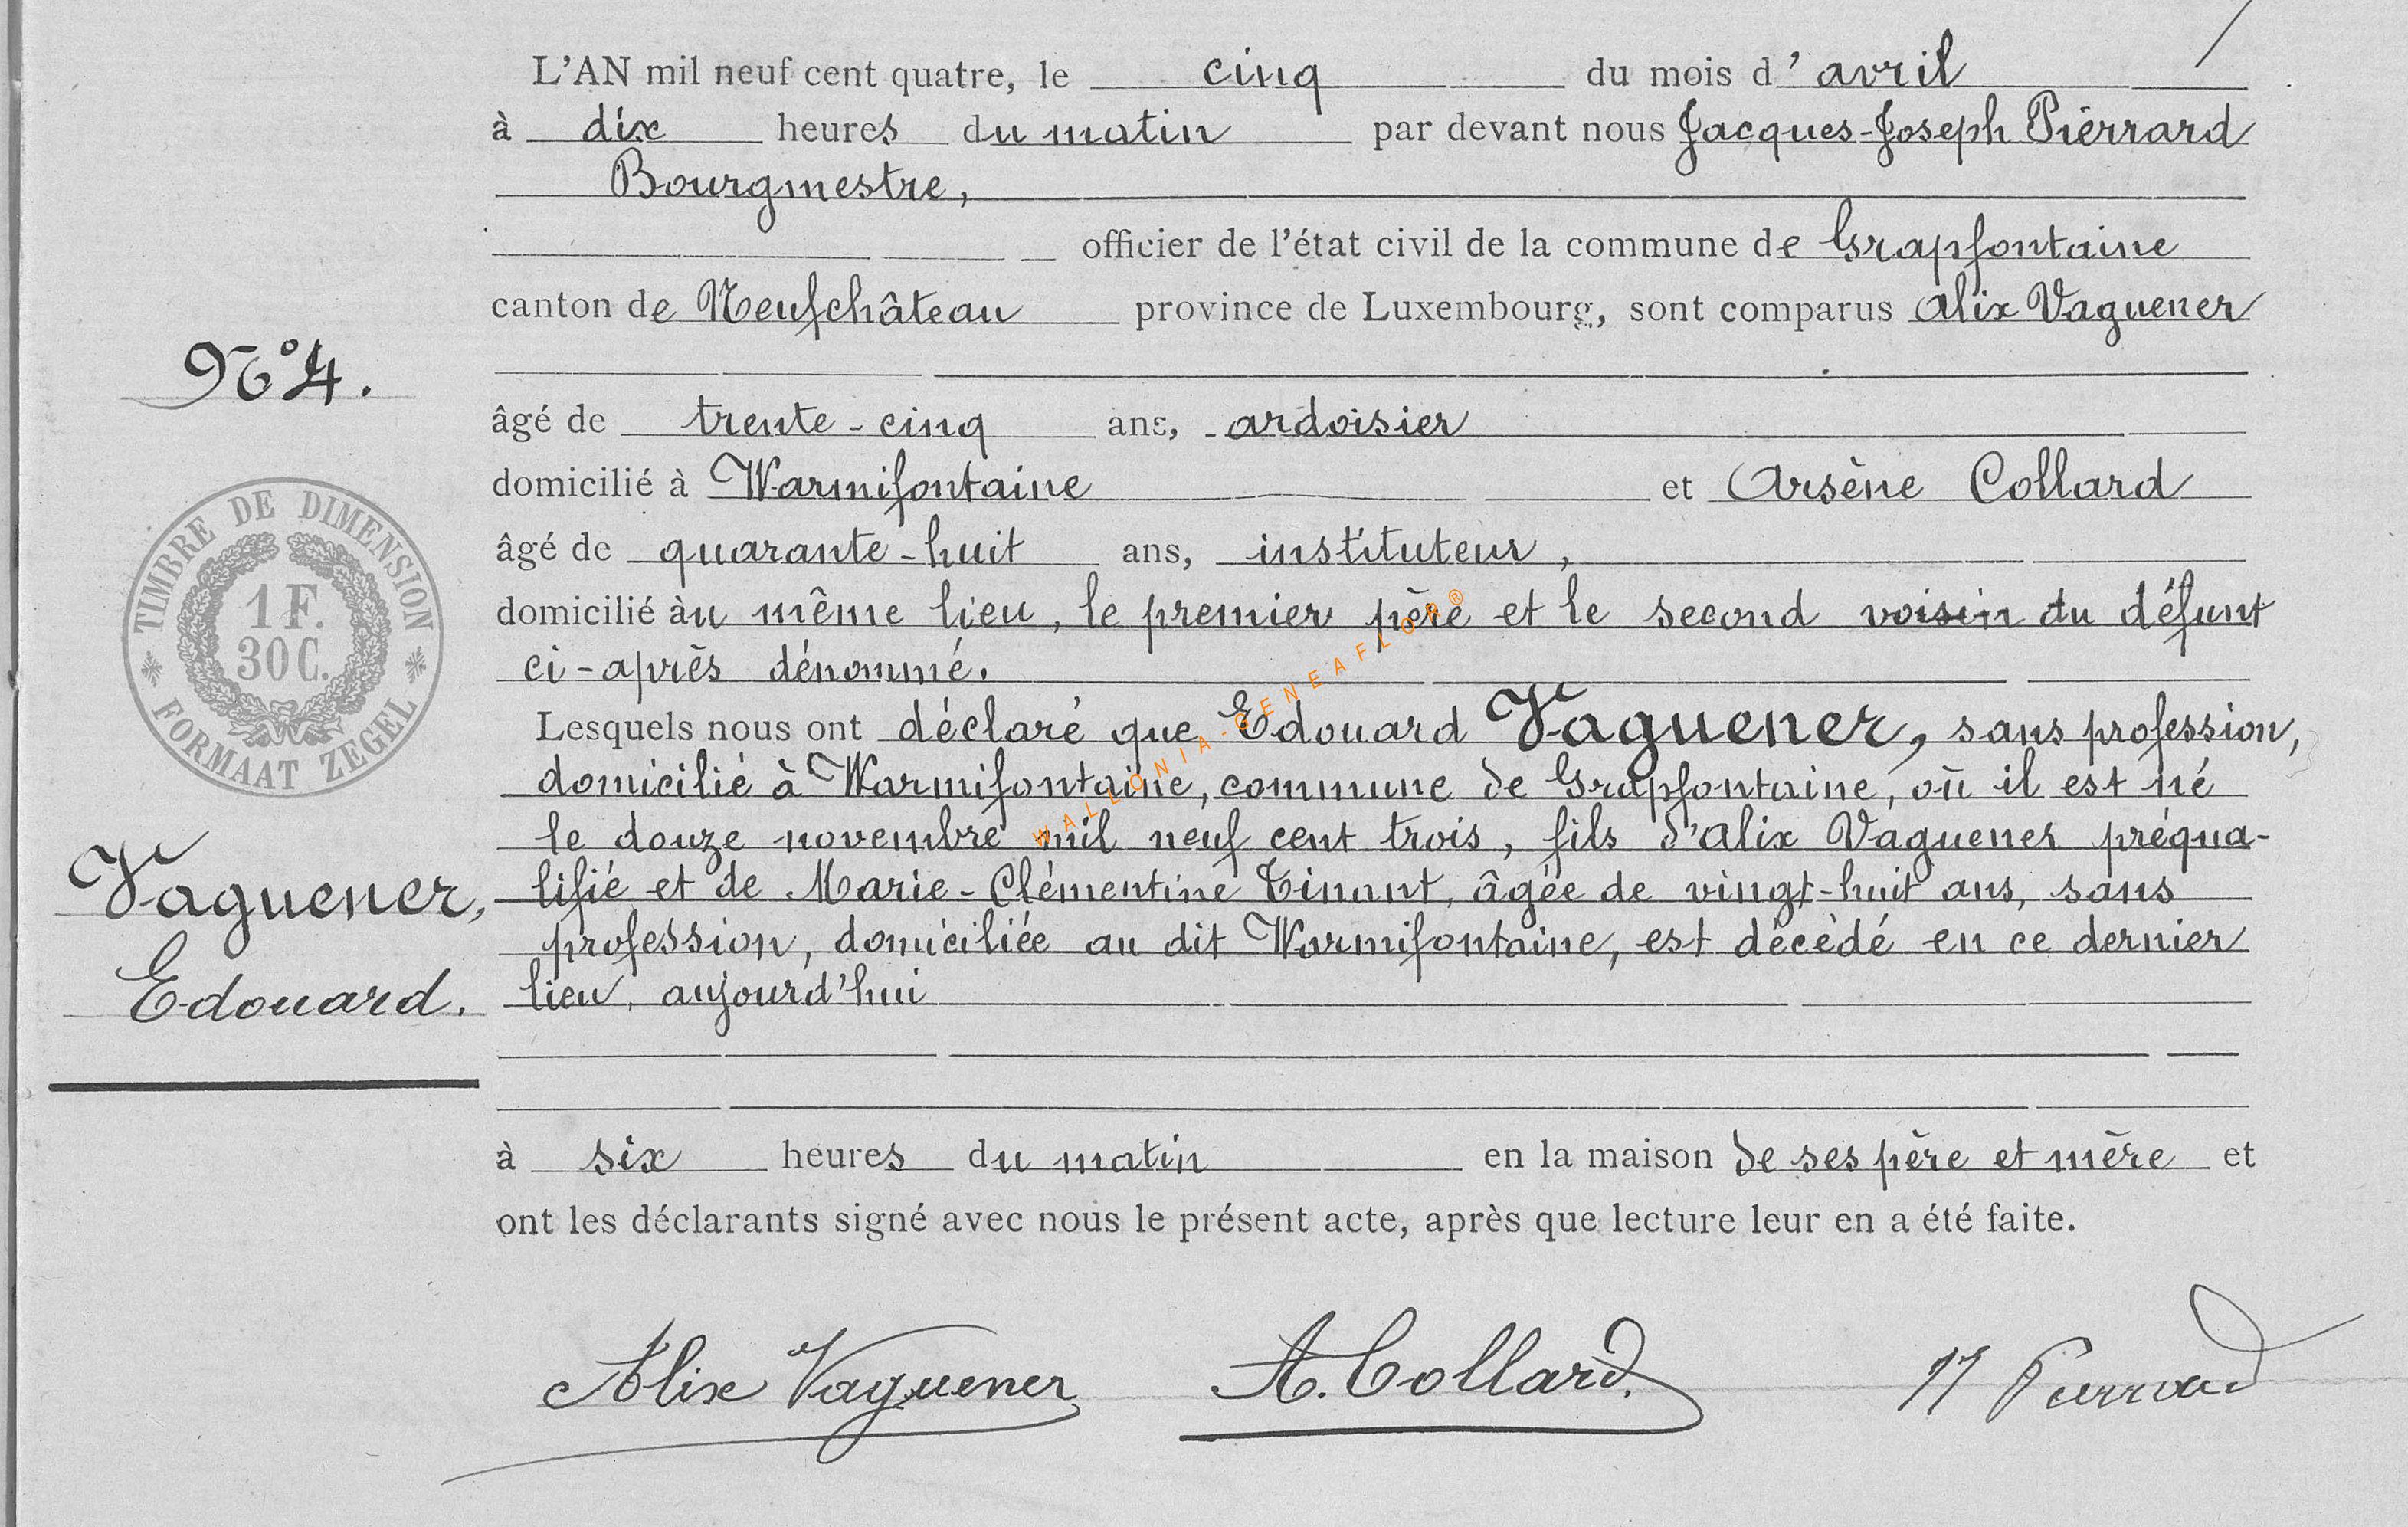 L'AN mil neuf cent quatre, le cinq du mois d'avril
à dix heures du matin par devant nous Jacques-Joseph Pierrard
Bourgmestre,
officier de l'état civil de la commune de Grapfontaine
canton de Neufchâteau province de Luxembourg, sont comparus Alix Vaguener
N° 4.
âgé de trente-cinq ans, ardoisier
domicilié à Warmifontaine et Arsène Collard
âgé de quarante-huit ans, instituteur,
domicilié àu même lieu, le premier père et le second voisin du défunt
ci-après dénommé.
TIMBRE DE DIMENSION
1 F.
30 C.
FORMAAT ZEGEL
Lesquels nous ont déclaré que Edouard Vaguener, sans profession,
domicilié à Warmifontaine, commune de Grapfontaine, où il est né
le douze novembre mil neuf cent trois, fils d'Alix Vaguener préqua-
lifié et de Marie-Clémentine Tinant, âgée de vingt-huit ans, sans
profession, domiciliée au dit Warmifontaine, est décédé en ce dernier
lieu, aujourd'hui
Vaguener,
Edouard.
à six heures du matin en la maison de ses père et mère et
ont les déclarants signé avec nous le présent acte, après que lecture leur en a été faite.
Alix Vaguener A. Collard. JJ Pierrard
WALLONIA-GENEAFLOR®